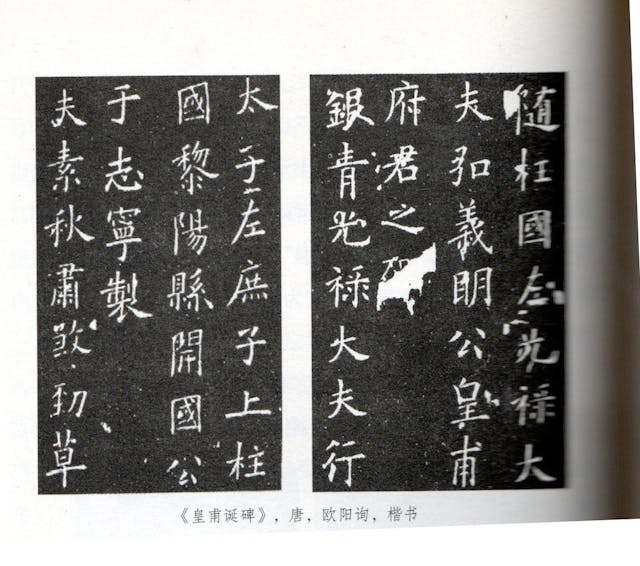 隨柱國左光祿大
夫弘義明公皇甫
府君之
銀青光祿大夫行
太子左庶子上柱
國黎陽縣開國公
于志寧製
夫素秋肅煞勁草
《皇甫诞碑》，唐，欧阳询，楷书